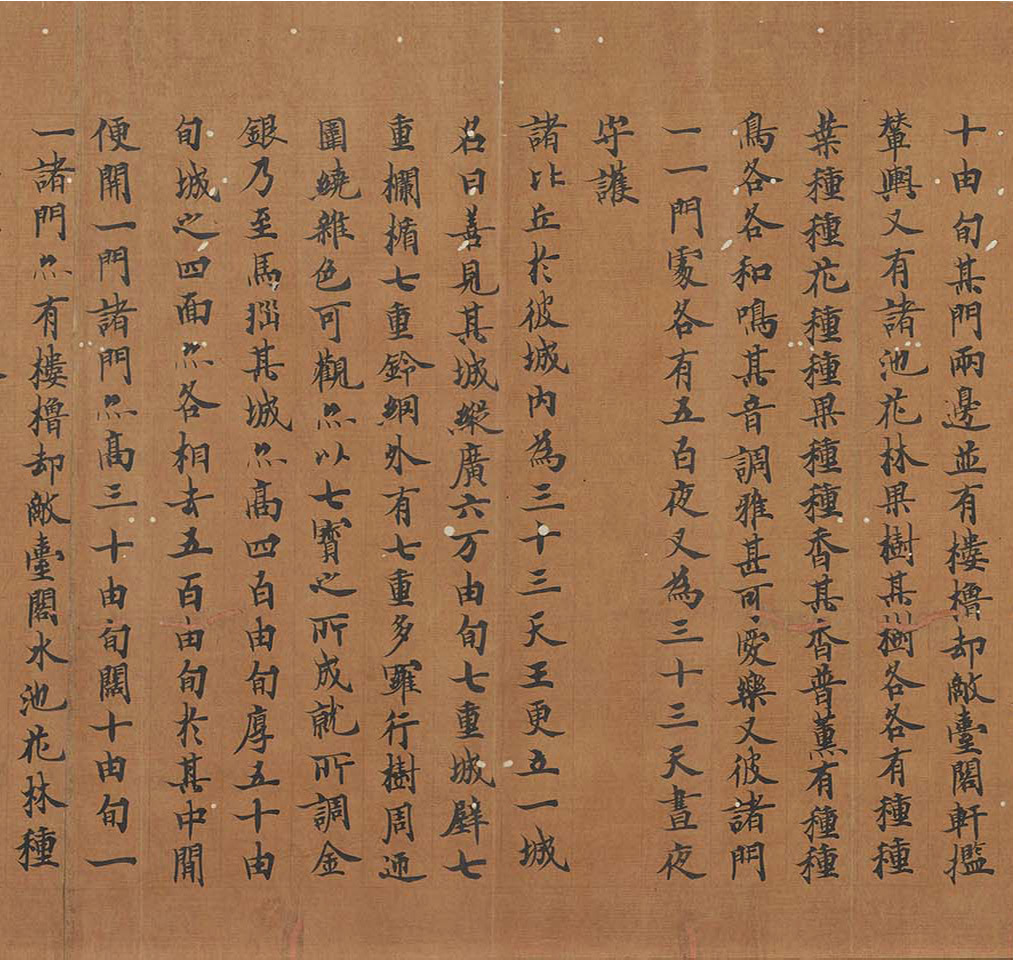 十由旬其門兩邊並有樓櫓却敵臺閣軒檻
輦輿又有諸池花林果樹其樹各各有種種
葉種種花種種果種種香其香普薰有種種
鳥各各和鳴其音調雅甚可愛樂又彼諸門
一一門處各有五百夜叉為三十三天晝夜
守護
諸比丘於彼城內為三十三天王更立一城
名曰善見其城縱廣六万由旬七重城壁七
重欄楯七重鈴網外有七重多羅行樹周迊
圍繞雜色可觀亦以七寶之所成就所謂金
銀乃至馬瑙其城亦高四百由旬厚五十由
旬城之四面亦各相去五百由旬於其中間
便開一門諸門亦高三十由旬闊十由旬一
一諸門亦有樓櫓却敵臺閣水池花林種